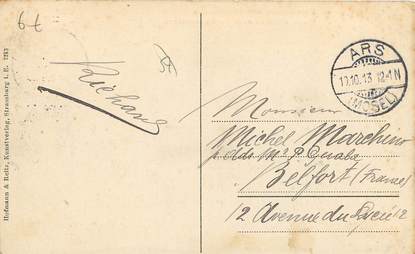 6 €
Richard
Hofmann & Reitz, Kunstverlag, Strassburg i. E. 7313
ARS
10.10.13 12-1N
(MOSEL)
Monsieur
Michel Marchino
Belfort (France)
12 Avenue du 12